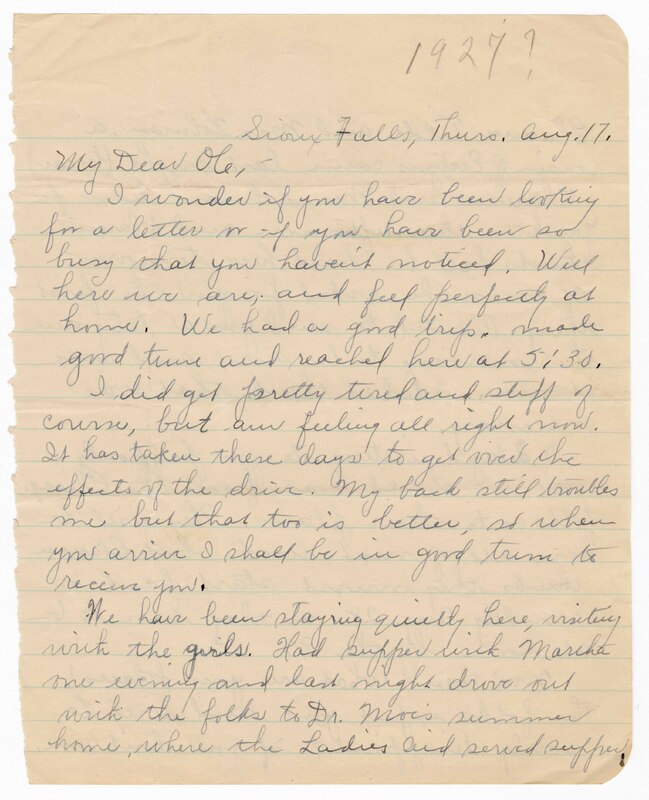 1927?
Sioux Falls, Thurs. Aug. 17.
My Dear Ole,-
I wonder if you have been looking
for a letter or if you have been so
busy that you haven't noticed. Well
here we are, and feel perfectly at
home. We had a good trip, made
good time and reached here at 5:30.
I did get pretty tired and stiff of
course, but am feeling all right now.
It has taken these days to get over the
effects of the drive. My back still troubles
me but that too is better, so when
you arrive I shall be in good trim to
receive you.
We have been staying quietly here, visiting
with the girls. Had supper with Martha
one evening and last night drove out
with the folks to Dr. Moe's summer
home, where the Ladies Aid served supper